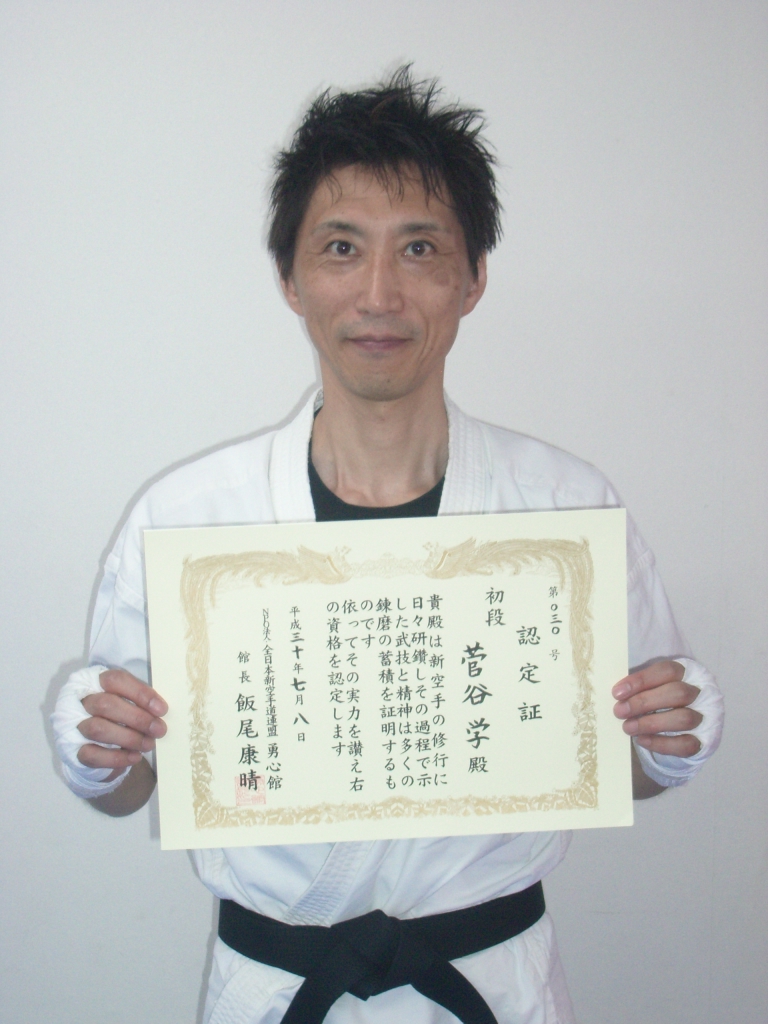 第〇三〇号
認定証
初段
菅谷学殿
貴殿は新空手の修行に
日々研鑽しその過程で示
した武技と精神は多くの
錬磨の蓄積を証明するも
のです
依ってその実力を讃え右
の資格を認定します
平成三十年七月八日
NPO法人全日本新空手道連盟 勇心館
館長 飯尾康晴